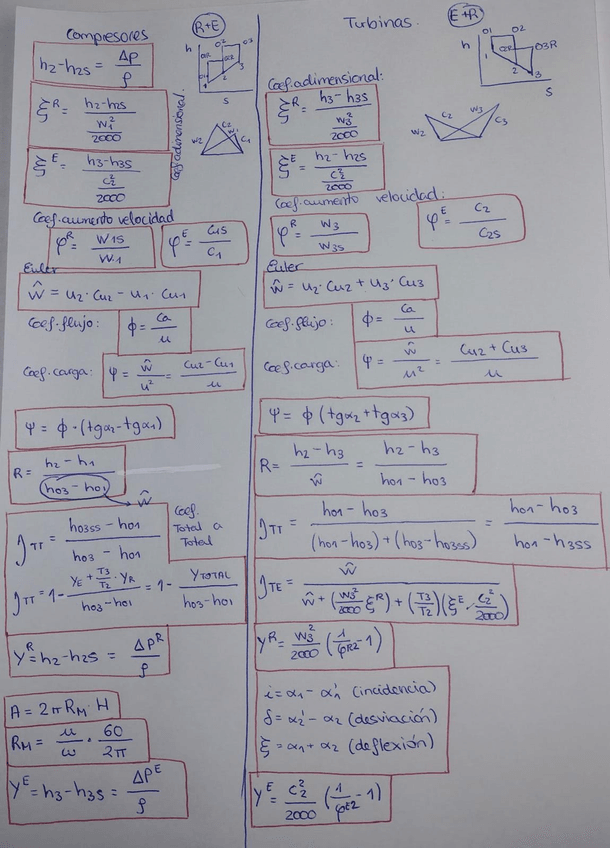 Compresores
R+E
h
01
02
03
0R
02R
1
2
3
S
h2-h2s = ΔP/ρ
ξ^R = (h2-h2s)/(w1²/2000)
Coef.adimensional.
w2
c2
w1
c1
ξ^E = (h3-h3s)/(c2²/2000)
Coef.aumento velocidad
φ^R = w1s/w1
φ^E = c1s/c1
Euler
ŵ = u2·cu2 - u1·cu1
Coef.flujo: ϕ = ca/u
Coef.carga: ψ = ŵ/u² = (cu2-cu1)/u
ψ = ϕ·(tgα2-tgα1)
R = (h2-h1)/(h03-h01)
ŵ
Coef.
Total a
Total
ηTT = (h03ss-h01)/(h03-h01)
ηTT = 1 - (YE + T3/T2·YR)/(h03-h01) = 1 - YTOTAL/(h03-h01)
Y^R = h2-h2s = ΔP^R/ρ
A = 2πRM·H
RM = u/ω · 60/2π
Y^E = h3-h3s = ΔP^E/ρ
Turbinas.
E+R
h
01
02
0R
03R
1
2
3
S
Coef.adimensional:
ξ^R = (h3-h3s)/(w3²/2000)
w2
c2
w3
c3
ξ^E = (h2-h2s)/(c2²/2000)
Coef.aumento velocidad:
φ^R = w3/w3s
φ^E = c2/c2s
Euler
ŵ = u2·cu2 + u3·cu3
Coef.flujo: ϕ = ca/u
Coef.carga: ψ = ŵ/u² = (cu2+cu3)/u
ψ = ϕ(tgα2+tgα3)
R = (h2-h3)/ŵ = (h2-h3)/(h01-h03)
ηTT = (h01-h03)/((h01-h03)+(h03-h03ss)) = (h01-h03)/(h01-h3ss)
ηTE = ŵ/(ŵ+(w3²/2000 ξ^R)+(T3/T2)(ξ^E·c2²/2000))
Y^R = w3²/2000 (1/φ^R2 - 1)
i = α1 - α1' (incidencia)
δ = α2' - α2 (desviación)
ξ = α1 + α2 (deflexión)
Y^E = c2²/2000 (1/φ^E2 - 1)